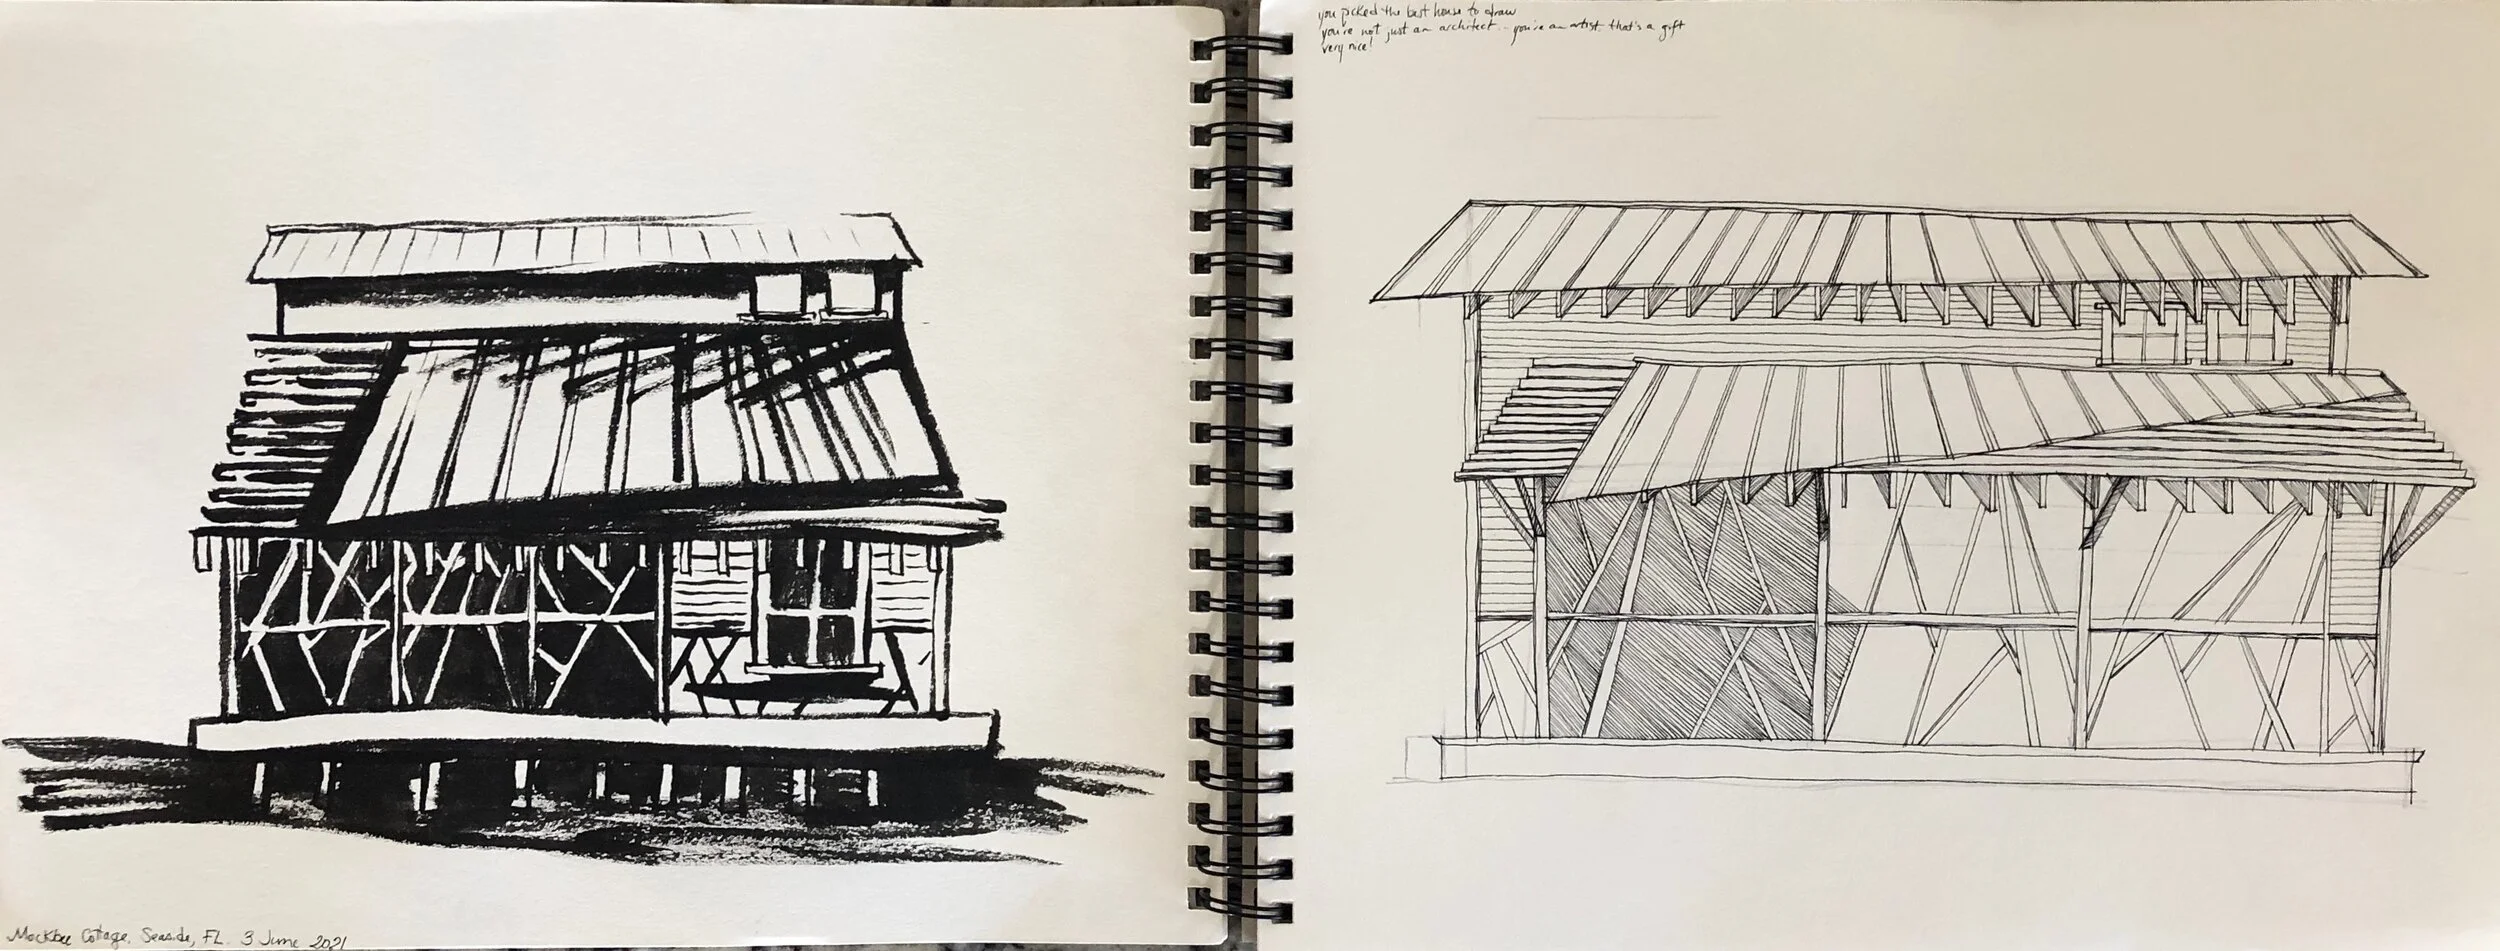 Mockbee Cottage, Seaside, FL. 3 June 2021
you picked the best house to draw
you're not just an architect... you're an artist. that's a gift
very nice!